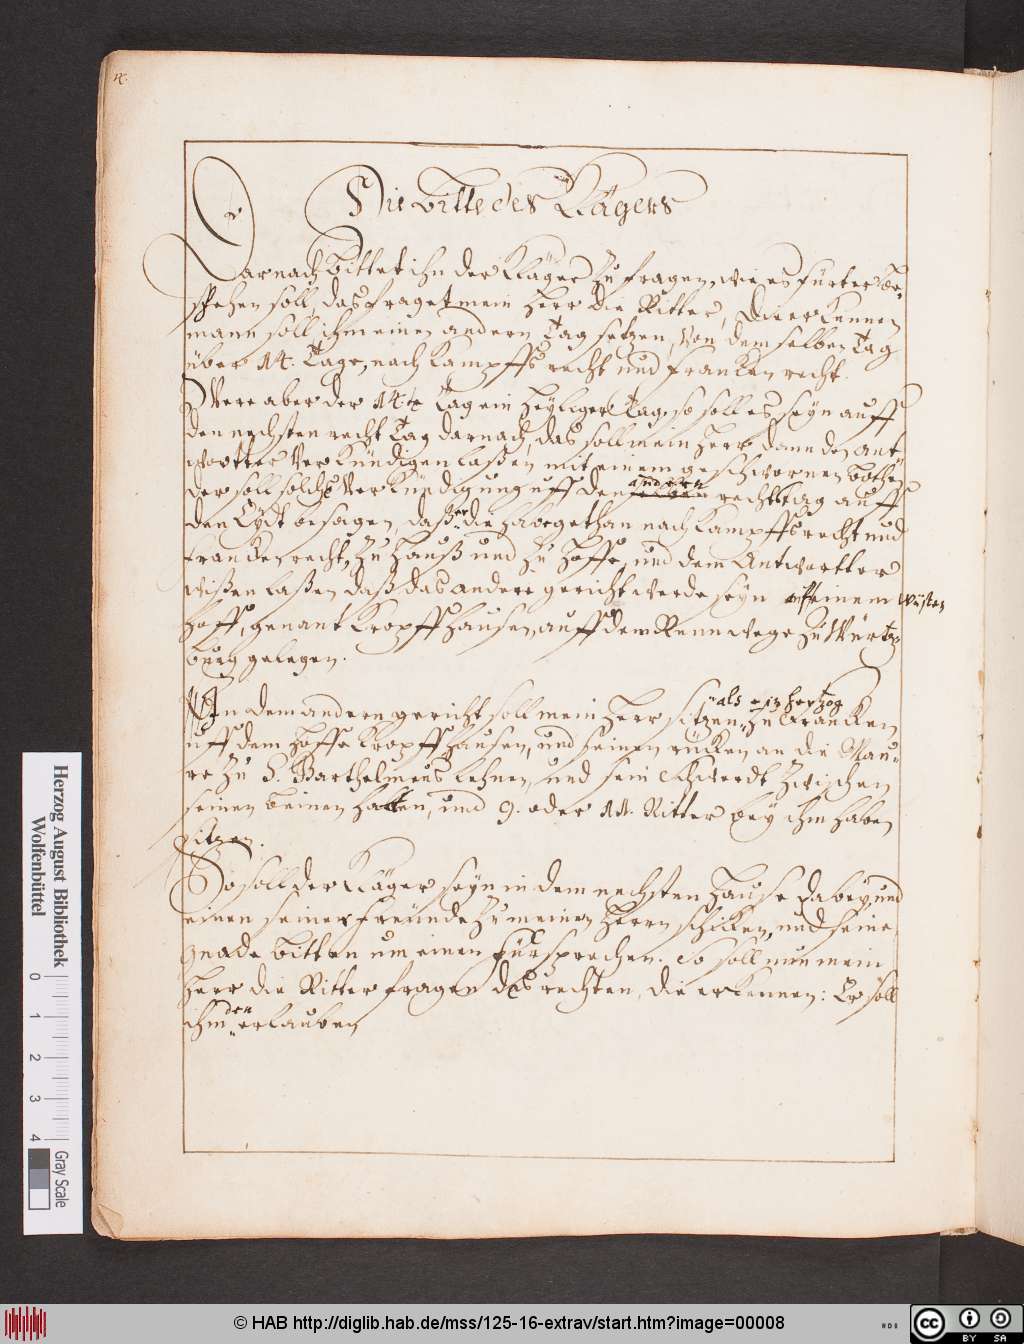 4.
Die bitte des Klägers
Darnach bittet ihn der Kläger zu fragen, wie es fürter be-
schehen soll, das fraget mein Herr die Ritter, Die erkennen
mann soll ihm einen andern Tag setzen, Von dem selben Tag
über 14. Tage, nach Kampffs recht und francken recht.
Were aber der 14.te Tag ein heyliger Tag, so soll es seyn auff
den nechsten recht Tag darnach, das soll mein Herr dann den Ant
wortter Verkündigen laßen, mit einem geschwornen bothen
andern
der soll solche Verkündigung uff den rechttag auff
den Eydt besagen, daß er die habe gethan nach Kampffs recht und
francken recht, zu Hauß und zu Hoffe, und dem Antwortter
wißen laßen, daß das andere gericht werde seyn uff einem wüsten
Hoff, genant Kropffhausen, auff dem Rennwege zu Würtz
burg gelegen.
als ein hertzog
In dem andern gericht soll mein Herr sitzen, zu francken
uff dem Hoffe Kropffhausen, und seinen rücken an die Mau-
re zu S. Barthelmeus lehnen, und sein Schwerdt zwischen
seinen beinen halten, und 9. oder 11. Ritter bey ihm haben
sitzen.
So soll der Kläger seyn in dem nechsten Hause dabey, und
einen seiner freunde zu meinen Herrn schicken, und seine
gnade bitten um einen fürsprechen. So soll nun mein
Herr die Ritter fragen des rechten, die erkennen: Er soll
ihm den erlauben
Herzog August Bibliothek
Wolfenbüttel
0 1 2 3 4
Gray Scale
© HAB http://diglib.hab.de/mss/125-16-extrav/start.htm?image=00008
HAB
cc BY SA